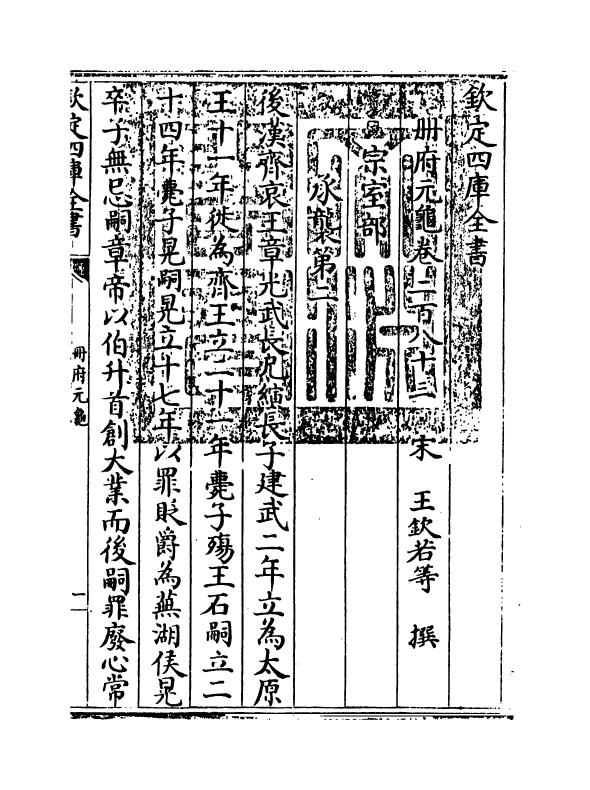 欽定四庫全書
冊府元龜卷二百八十三 宋 王欽若等 撰
宗室部
承襲第二
後漢齊哀王章光武長兄縯長子建武二年立為太原
王十一年徙為齊王立二十一年薨子殤王石嗣立二
十四年薨子晃嗣晃立十七年以罪貶爵為蕪湖侯晃
卒子無忌嗣章帝以伯升首創大業而後嗣罪廢心常
欽定四庫全書
冊府元龜